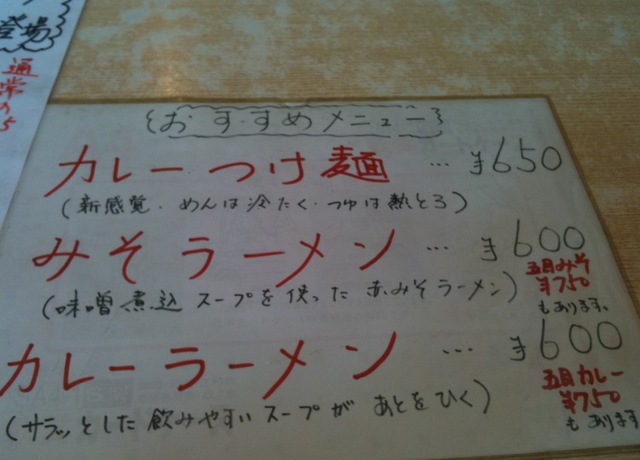 登場
通常の5
おすすめメニュー
カレーつけ麺 … ¥650
(新感覚・めんは冷たく・つゆは熱とろ)
みそラーメン … ¥600
五目みそ
¥750
もあります。
(味噌煮込スープを使った赤みそラーメン)
カレーラーメン … ¥600
五目カレー
¥750
もあります
(サラッとした飲みやすいスープがあとをひく)